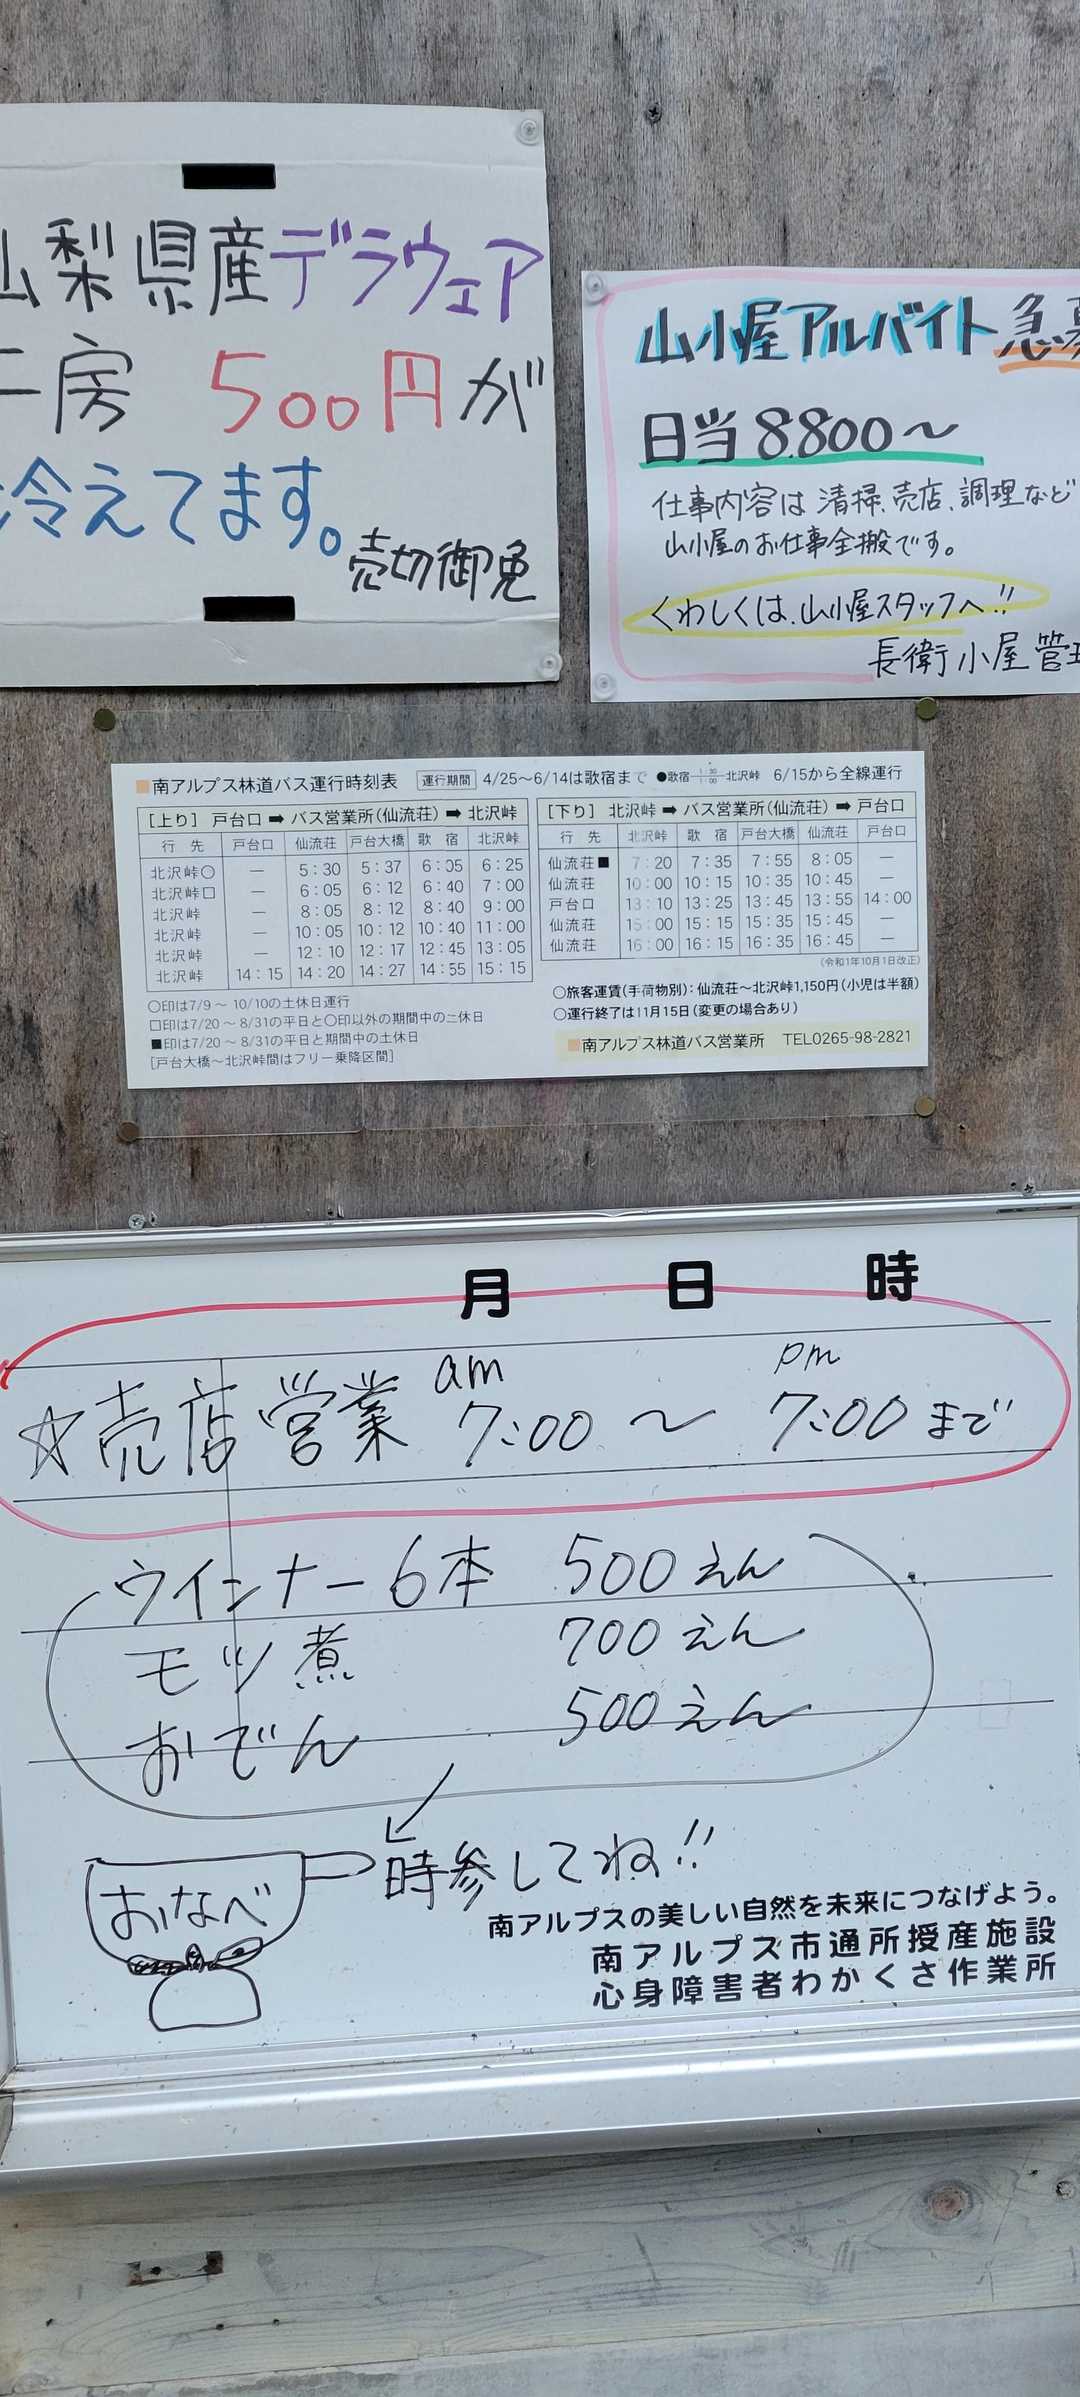 山梨県産デラウェア
一房 500円が
冷えてます。
売切御免
山小屋アルバイト急募
日当8.800～
仕事内容は 清掃、売店、調理など
山小屋のお仕事全搬です。
くわしくは、山小屋スタッフへ!!
長衛小屋 管理
■南アルプス林道バス運行時刻表 運行期間 4/25～6/14は歌宿まで ●歌宿 北沢峠 6/15から全線運行
[上り] 戸台口 ➡ バス営業所(仙流荘) ➡ 北沢峠
行先 戸台口 仙流荘 戸台大橋 歌宿 北沢峠
北沢峠○ ― 5:30 5:37 6:05 6:25
北沢峠□ ― 6:05 6:12 6:40 7:00
北沢峠 ― 8:05 8:12 8:40 9:00
北沢峠 ― 10:05 10:12 10:40 11:00
北沢峠 ― 12:10 12:17 12:45 13:05
北沢峠 14:15 14:20 14:27 14:55 15:15
○印は7/9～10/10の土休日運行
□印は7/20～8/31の平日と○印以外の期間中の土休日
■印は7/20～8/31の平日と期間中の土休日
[戸台大橋～北沢峠間はフリー乗降区間]
[下り] 北沢峠 ➡ バス営業所(仙流荘) ➡ 戸台口
行先 北沢峠 歌宿 戸台大橋 仙流荘 戸台口
仙流荘■ 7:20 7:35 7:55 8:05 ―
仙流荘 10:00 10:15 10:35 10:45 ―
戸台口 13:10 13:25 13:45 13:55 14:00
仙流荘 15:00 15:15 15:35 15:45 ―
仙流荘 16:00 16:15 16:35 16:45 ―
(令和1年10月1日改正)
○旅客運賃(手荷物別):仙流荘～北沢峠1,150円(小児は半額)
○運行終了は11月15日(変更の場合あり)
■南アルプス林道バス営業所 TEL0265-98-2821
月 日 時
☆売店営業 am 7:00 ～ pm 7:00まで
ウインナー6本 500えん
モツ煮 700えん
おでん 500えん
おなべ
時参してね!!
南アルプスの美しい自然を未来につなげよう。
南アルプス市通所授産施設
心身障害者わかくさ作業所